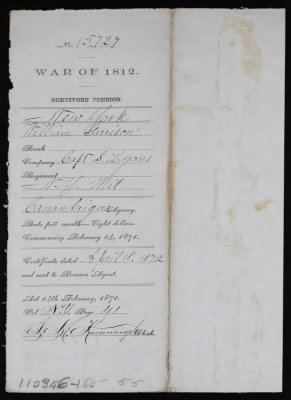 No 15,727
WAR OF 1812.
SURVIVORS' PENSION.
New York
William
Rank
Company Capt S. Lyons
Regiment
N.Y. Mil
Canandaigua Agency.
Rate per month—Eight dollars.
Commencing February 14, 1871.
Certificate dated April 18, 1872
and sent to Pension Agent.
Act 14th February, 1871.
Vol. Page 41
Clerk.
110346-165 55